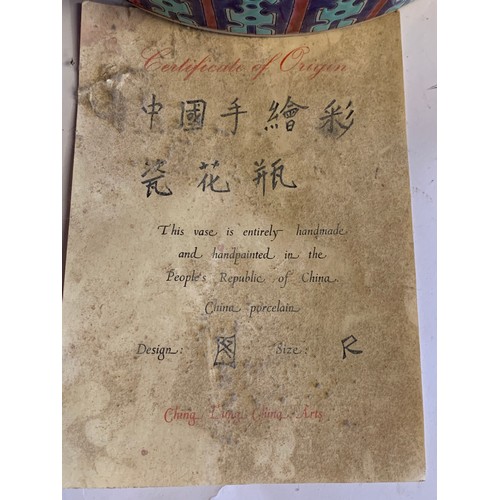 Certificate of Origin
中國手繪彩
瓷花瓶
This vase is entirely handmade
and handpainted in the
People's Republic of China
China porcelain
Design: 图 Size: 尺
Ching Ching Arts